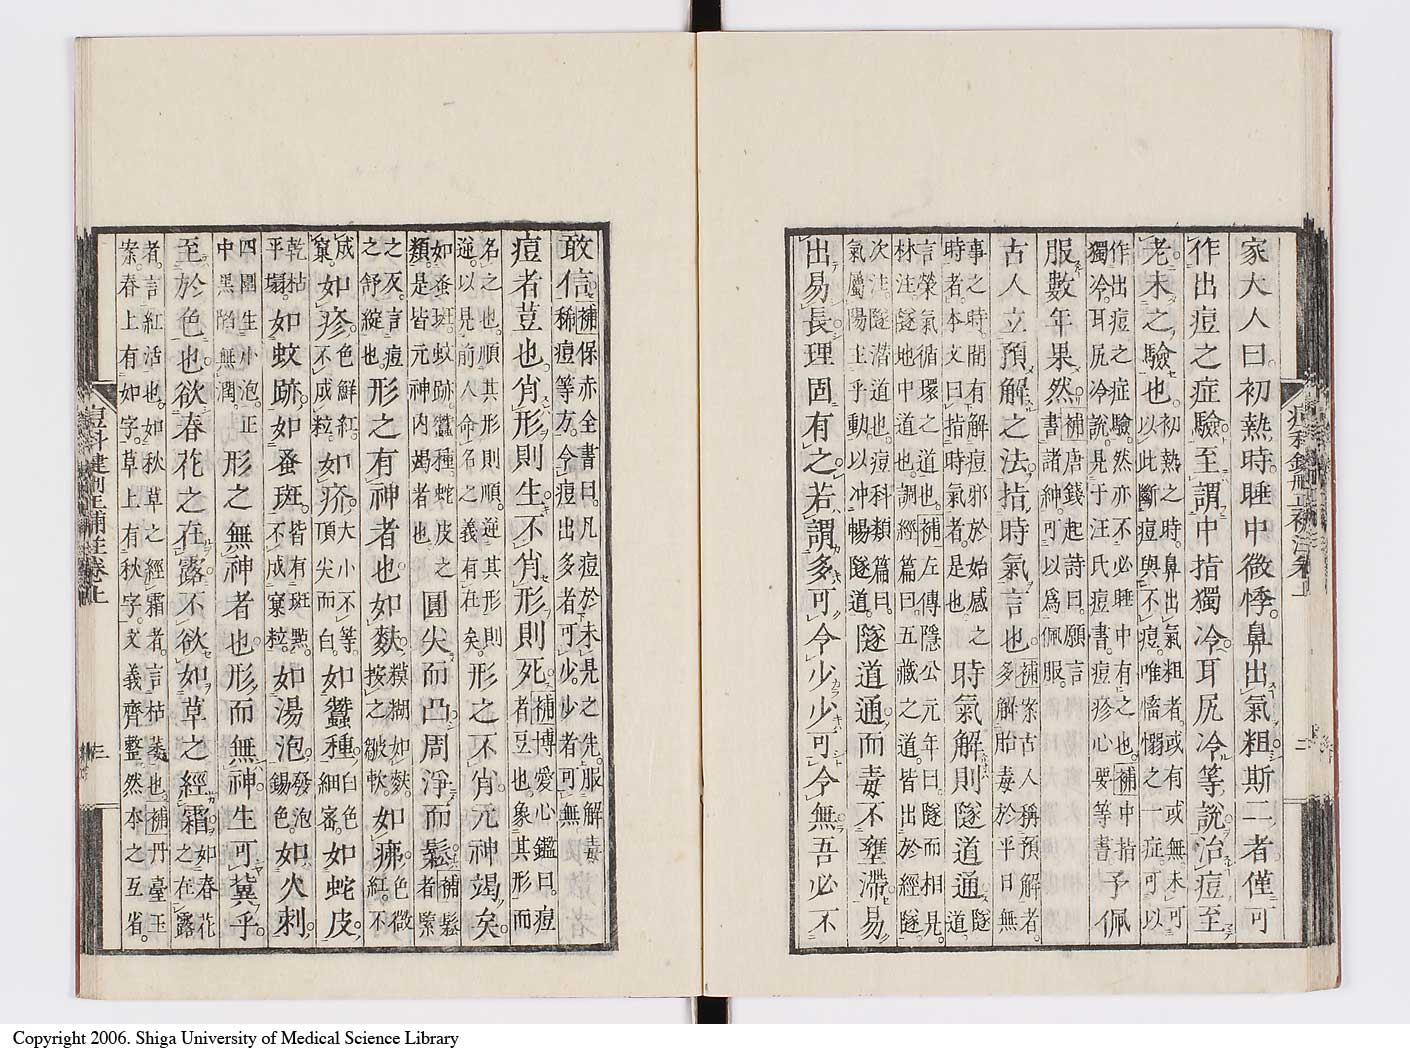 家大人曰初熱時睡中微悸鼻出氣粗斯二者僅可
作出痘之症驗至謂中指獨冷耳尻冷等說冶痘至
老未之驗也初熱之時。鼻出氣粗者。或有或無。未可
以此斷痘與不痘。唯悸惕之一症。可以
作出痘之症驗。然亦不必睡中有之也。補中指
獨冷。耳尻冷說。見于汪氏痘書。痘疹心要等書予佩
服數年果然補唐錢起詩曰願言
書諸紳。可以爲佩服
古人立預解之法指時氣言也補案古人稱預解者。
多解胎毒於平日無
事之時。間有解痘邪於始感之
時者。本文曰指時氣者。是也時氣解則隧道通隧
道
言榮氣循環之道也。補左傳隱公元年曰。隧而相見。
林注。隧地中道也。調經篇曰。五藏之道。皆出於經隧。
次注。隧潛道也。痘科類篇曰。
氣屬陽主乎動以冲暢隧道。隧道通而毒不壅滯易
出易長理固有之若謂多可令少少可令無吾必不
敢信補保赤全書曰。凡痘於未見之先。服解毒
稀痘等方。今痘出多者可少少者可無
痘者荳也肖形則生不肖形則死補博愛心鑑曰。痘
者豆也。象其形而
名之也。順其形則順。逆其形則
逆。以見前人命名之義有在矣。形之不肖元神竭矣
如蚤斑。蚊跡。蠶種。蛇皮之
類。是皆元神内竭者也圓尖而凸周淨而鬆補鬆
者縈
之反。言痘
之舒綻也。形之有神者也如麩糢糊如麩。
按之皺軟如疿色微
紅。不
成
窠。如疹色鮮紅。
不成粒如疥大小不等。
頂尖而白如蠶種白色
細密。如蛇皮
乾枯
平塌。如蚊跡如蚤斑皆有斑點。
不成窠粒。如湯泡發泡
錫色。如火刺
四圍生小泡。正
中黑陷無潤。形之無神者也形而無神生可冀乎
至於色也欲春花之在露不欲如草之經霜如春花
之在露
者。言紅活也。如秋草之經霜者。言枯萎也。補丹臺玉
案春上有如字。草上有秋字。文義齊整然本之互省。
痘科鍵刪正補註卷上
三